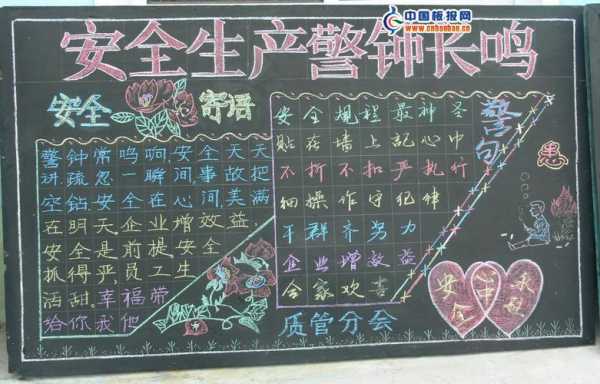 中国板报网
www.cnbanbao.cn
安全生产警钟长鸣
安全 寄语
警钟常鸣响,安全天天
讲.疏忽一瞬间,事故把
空钻.安全在心间,美满
在明天.企业增效益,
安全是前提.安全
抓得严,员工生
活甜.幸福带
给你我他
安全规程最神圣
贴在墙上記心中
不折不扣严执行
细操作守纪律
干群齐努力
企业增效益
合家欢喜
警句
患
安全
质管分会